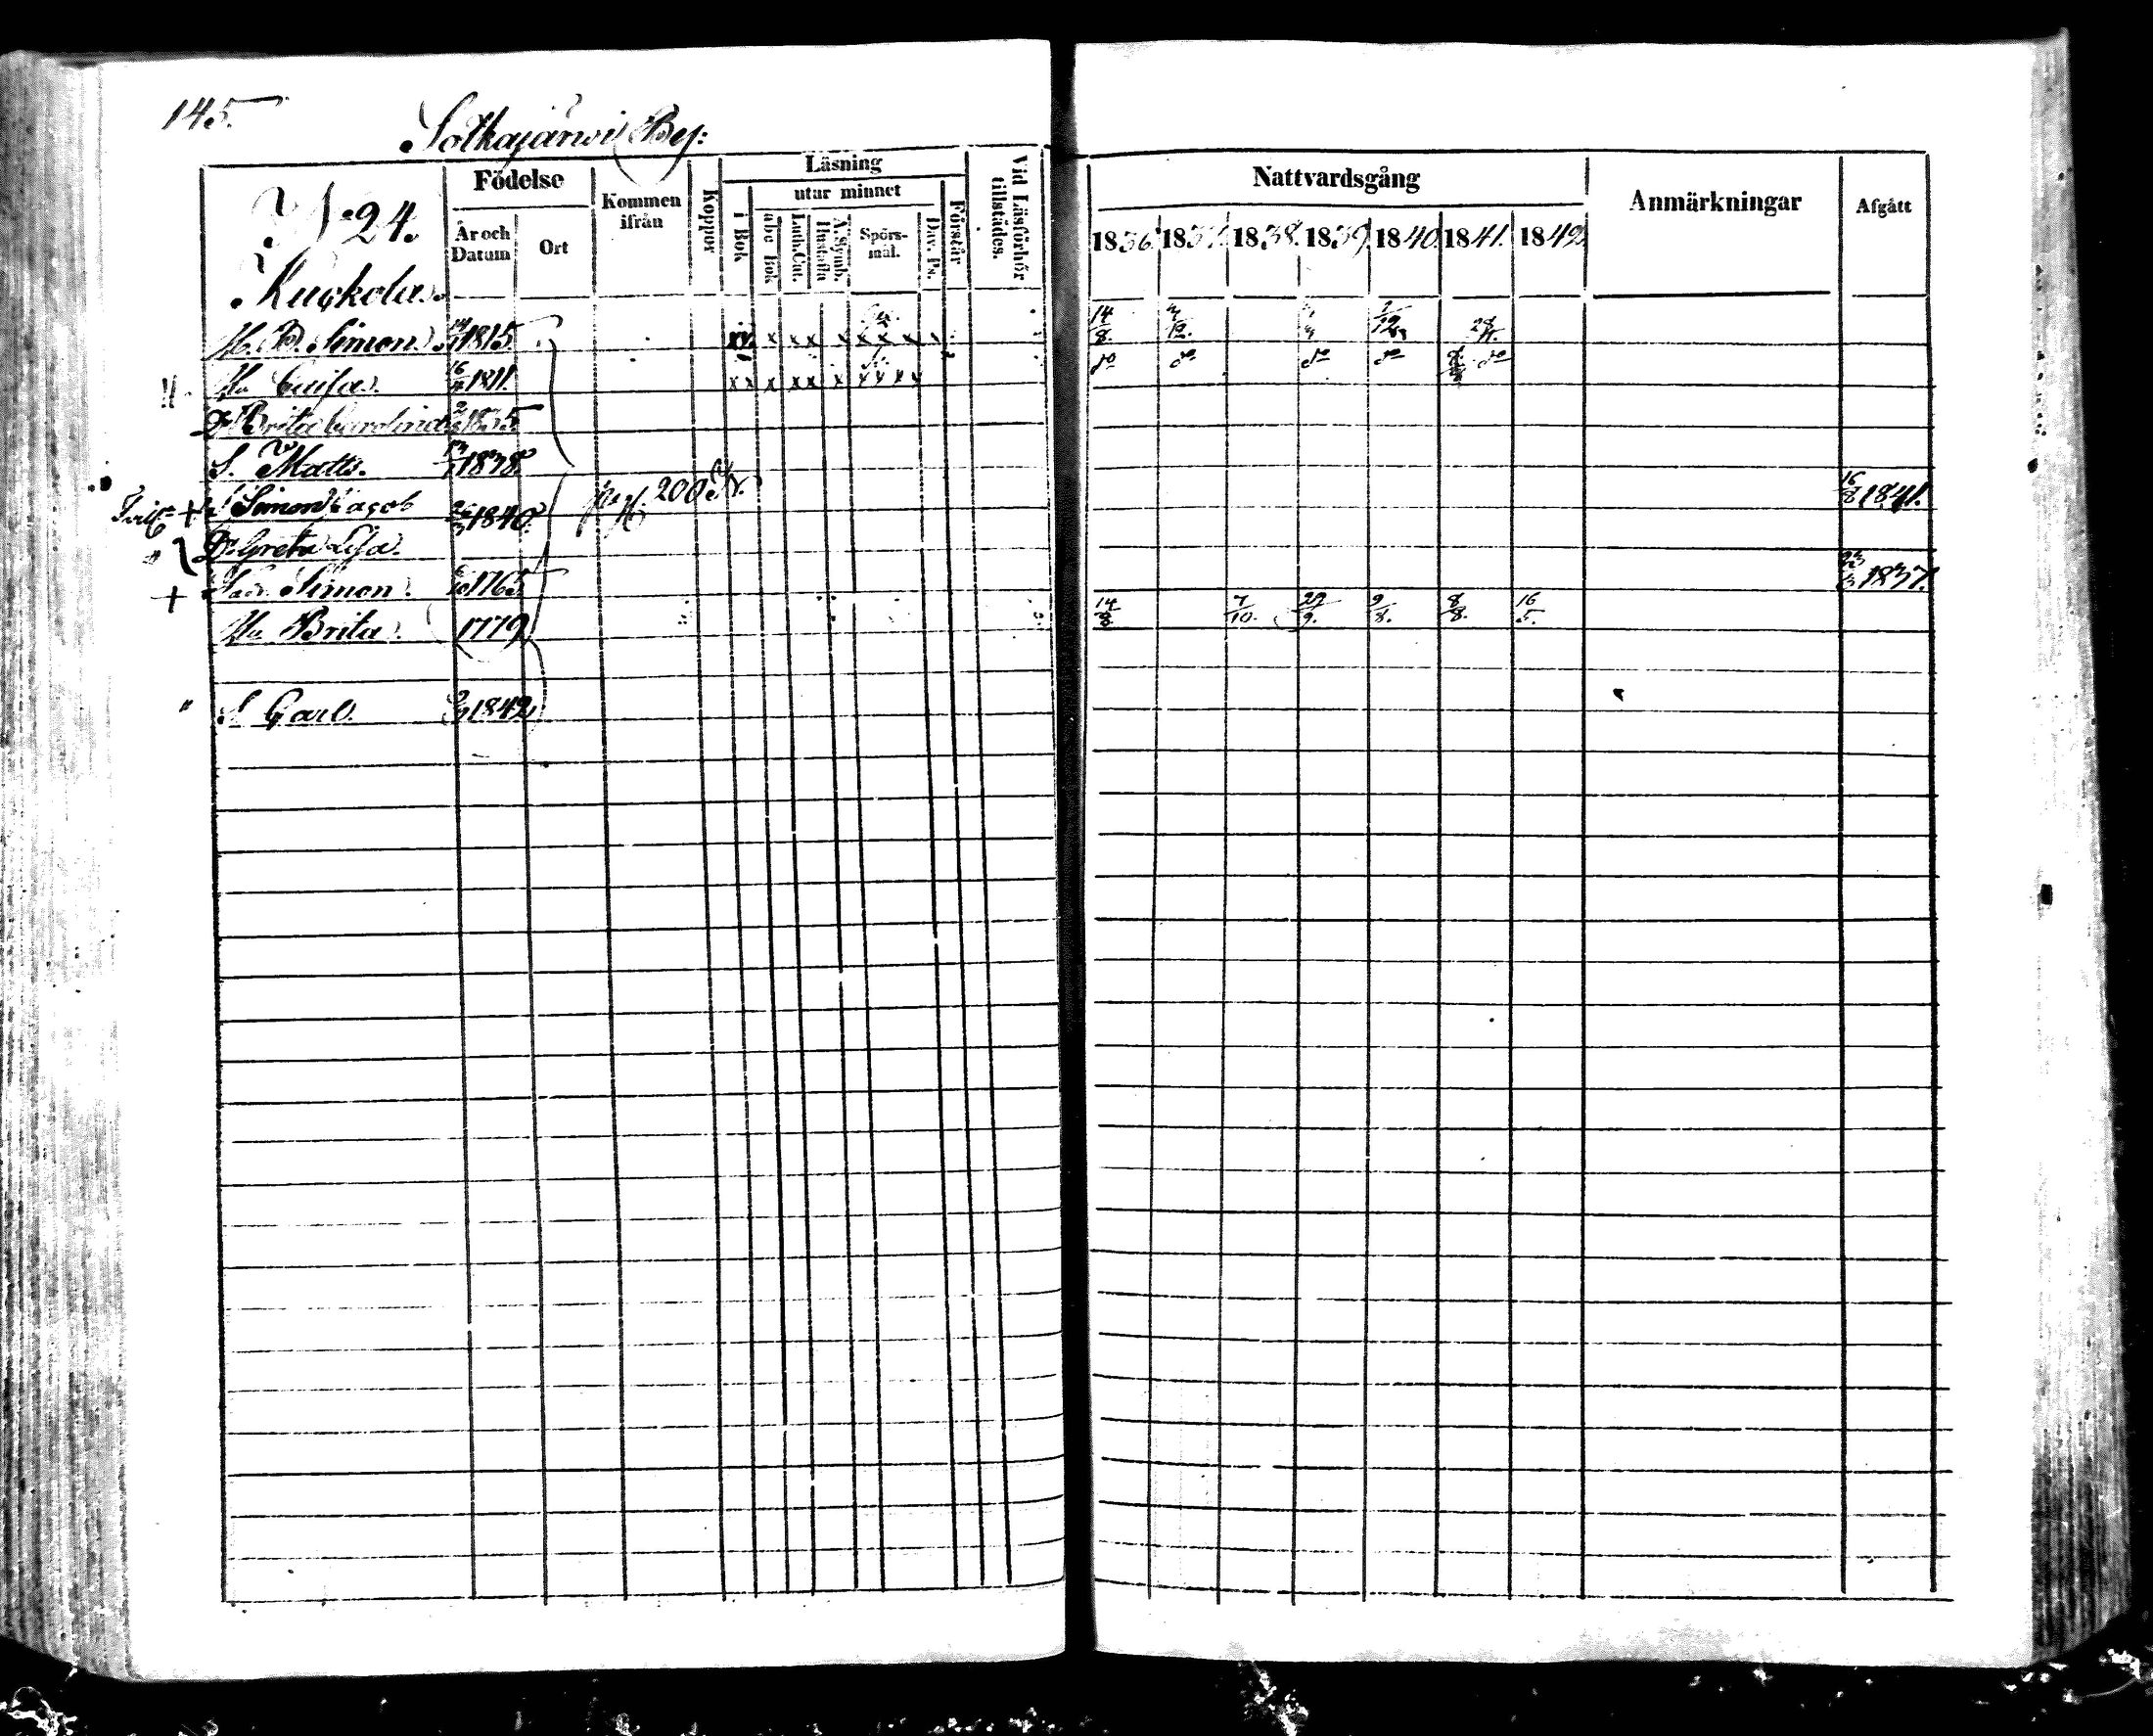 145.
Sotkajärwi By:
Läsning
Födelse
Kommen ifrån
Koppor
utur minnet
Förstår
Vid Läsförhör tillstädes.
Nattvardsgång
Anmärkningar
Afgått
År och Datum
Ort
i Bok
abc Bok
Luth. Cat.
Hustafla
A. Symb.
Spörs-mål.
Dav. Ps.
1836. 1837. 1838. 1839. 1840. 1841. 1842.
No 24.
Kuckola.
H. B. Simon. 1815. 14/8. 28/11.
Hu Caisa. 16 1811. do do do do do
Dr Brita Carolina 1835.
S. Matts. 1838.
+ S Simon Jacob 1840. pag. 200. 16/8 1841.
Dr. Greta Lisa.
+ Fadr. Simon. 1765 1837.
Hu Brita. 1779 14/8 7/10. 29/9. 9/8. 8/8. 16/5.
" S Carl. 1842